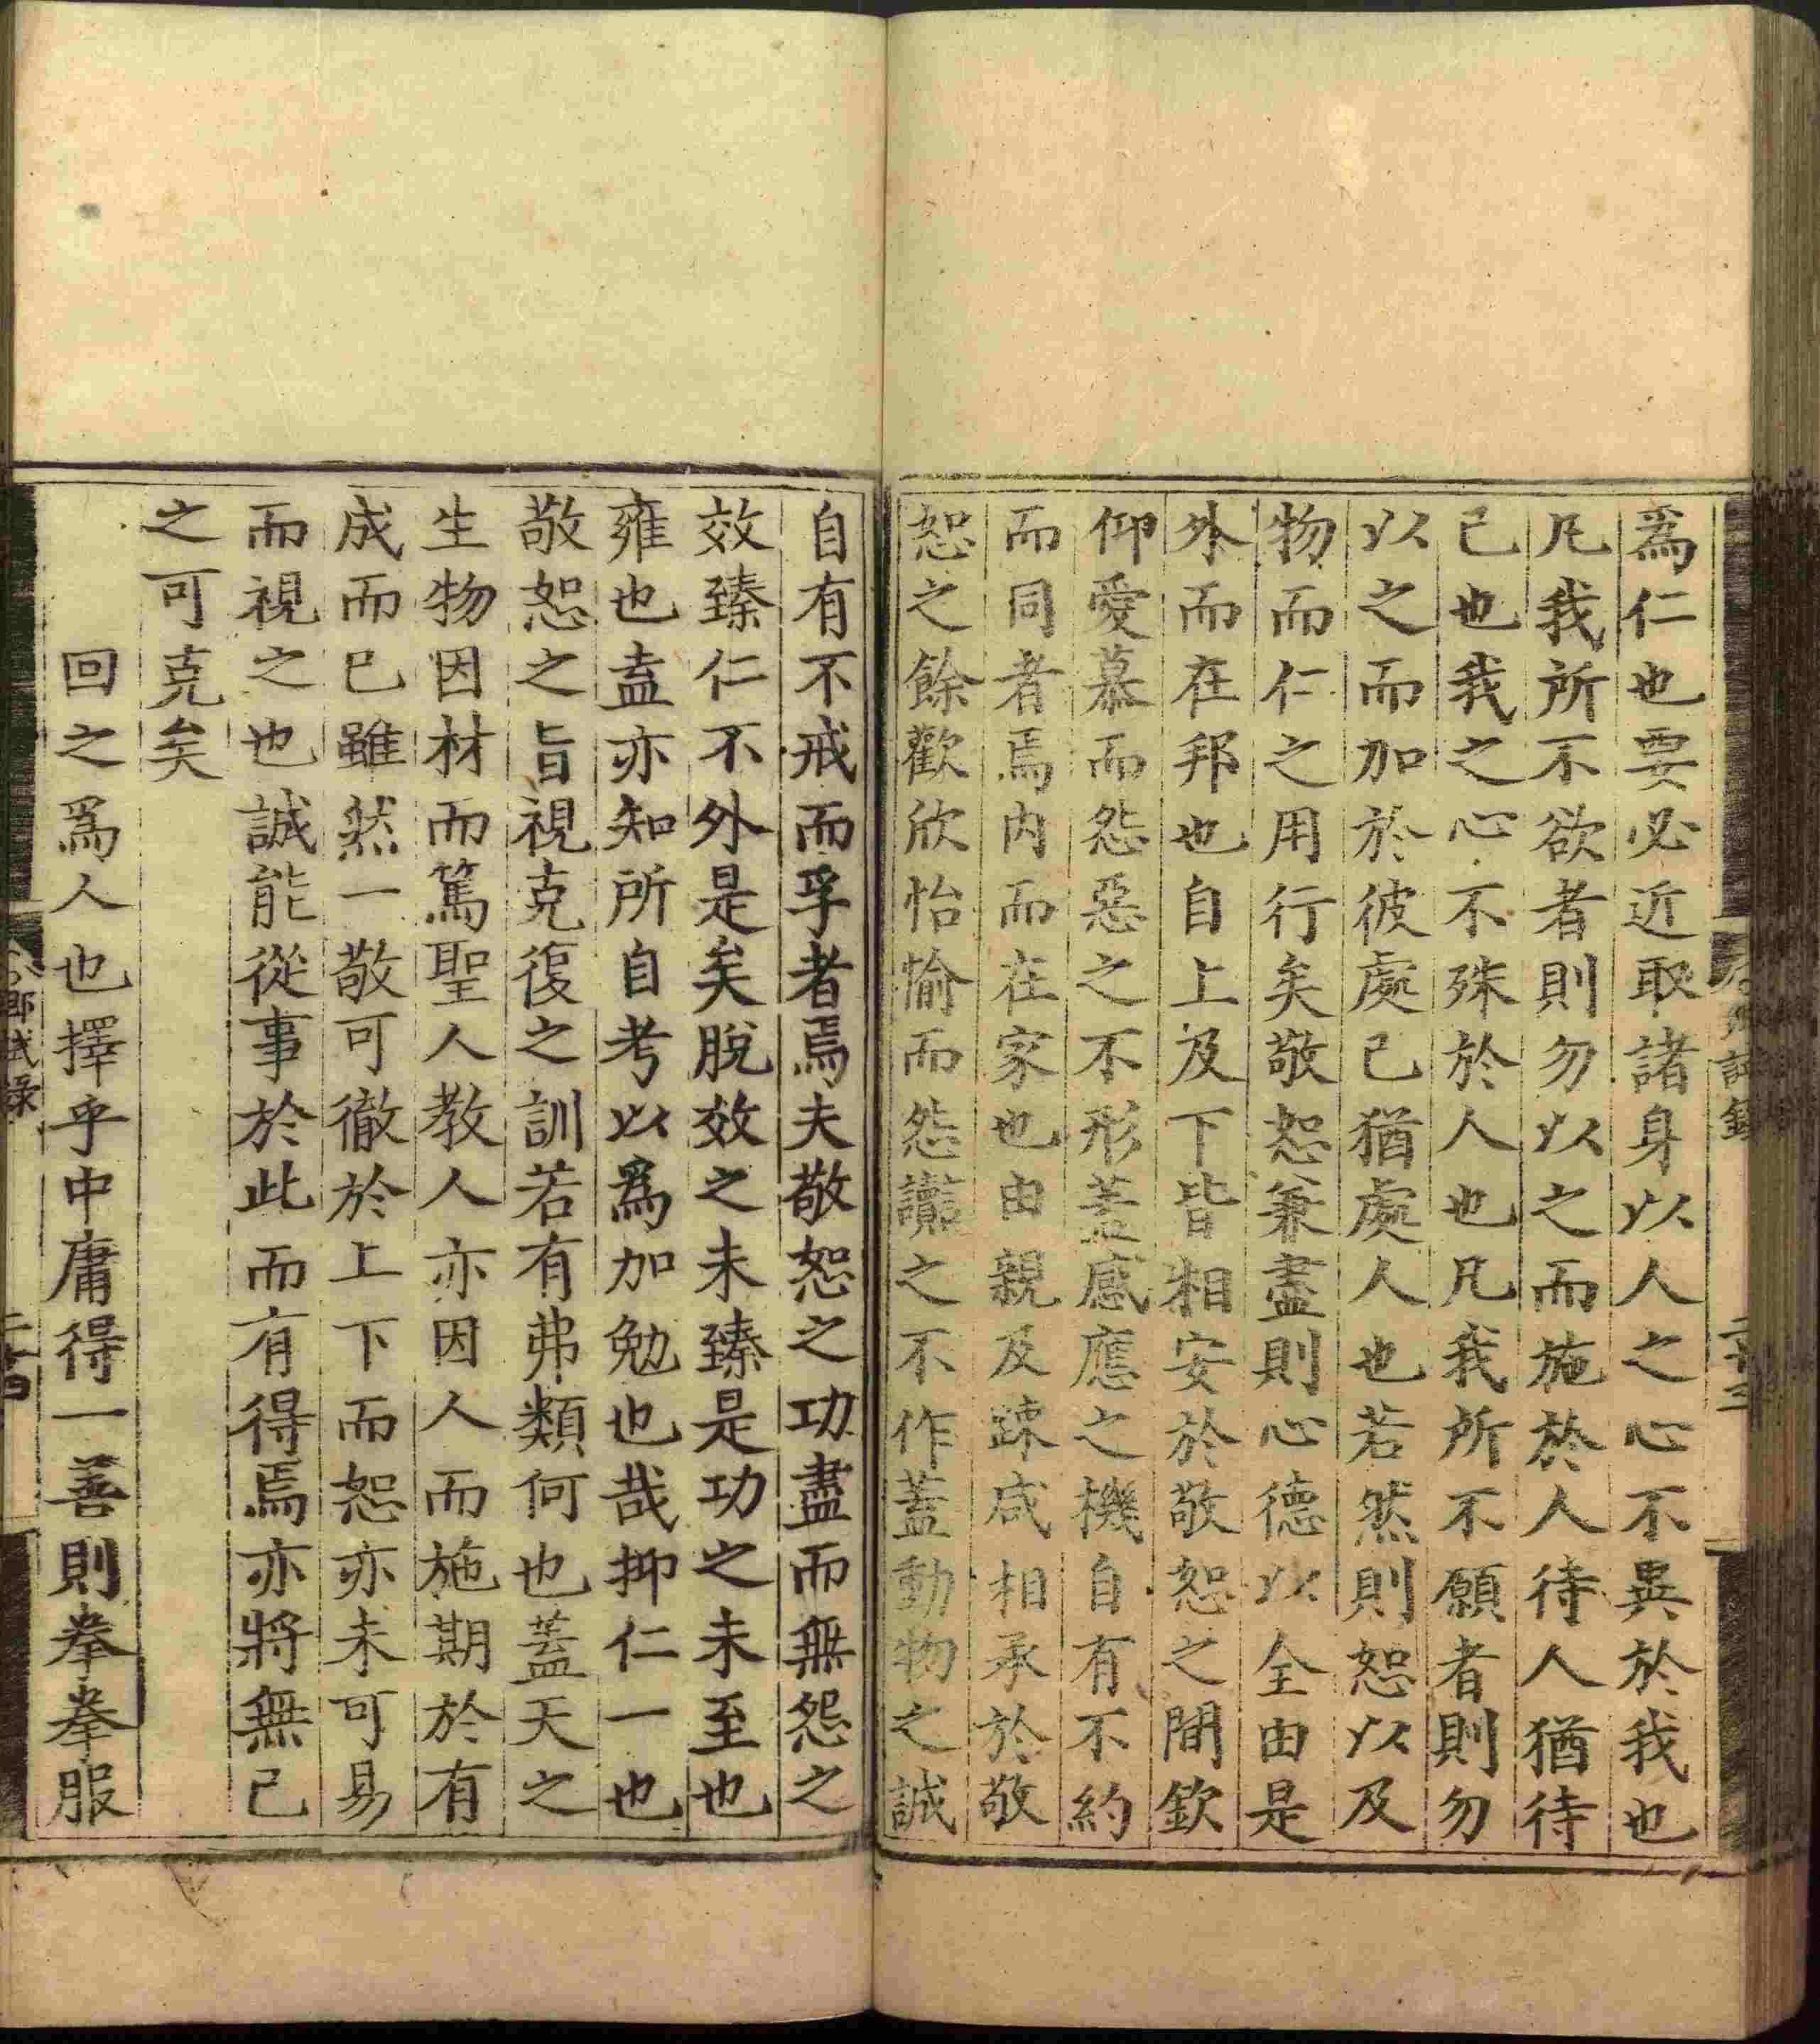 爲仁也要必近取諸身以人之心不異於我也
凡我所不欲者則勿以之而施於人待人猶待
己也我之心不殊於人也凡我所不願者則勿
以之而加於彼處己猶處人也若然則恕以及
物而仁之用行矣敬恕兼盡則心德以全由是
外而在邦也自上及下皆相安於敬恕之間欽
仰愛慕而怨惡之不形蓋感應之機自有不約
而同者焉内而在家也由親及疎咸相承於敬
恕之餘歡欣怡愉而怨讟之不作蓋動物之誠
自有不戒而孚者焉夫敬恕之功盡而無怨之
效臻仁不外是矣脫效之未臻是功之未至也
雍也盍亦知所自考以爲加勉也哉抑仁一也
敬恕之旨視克復之訓若有弗類何也蓋天之
生物因材而篤聖人教人亦因人而施期於有
成而已雖然一敬可徹於上下而恕亦未可易
而視之也誠能從事於此而有得焉亦將無己
之可克矣
回之爲人也擇乎中庸得一善則拳拳服
試錄
二十四